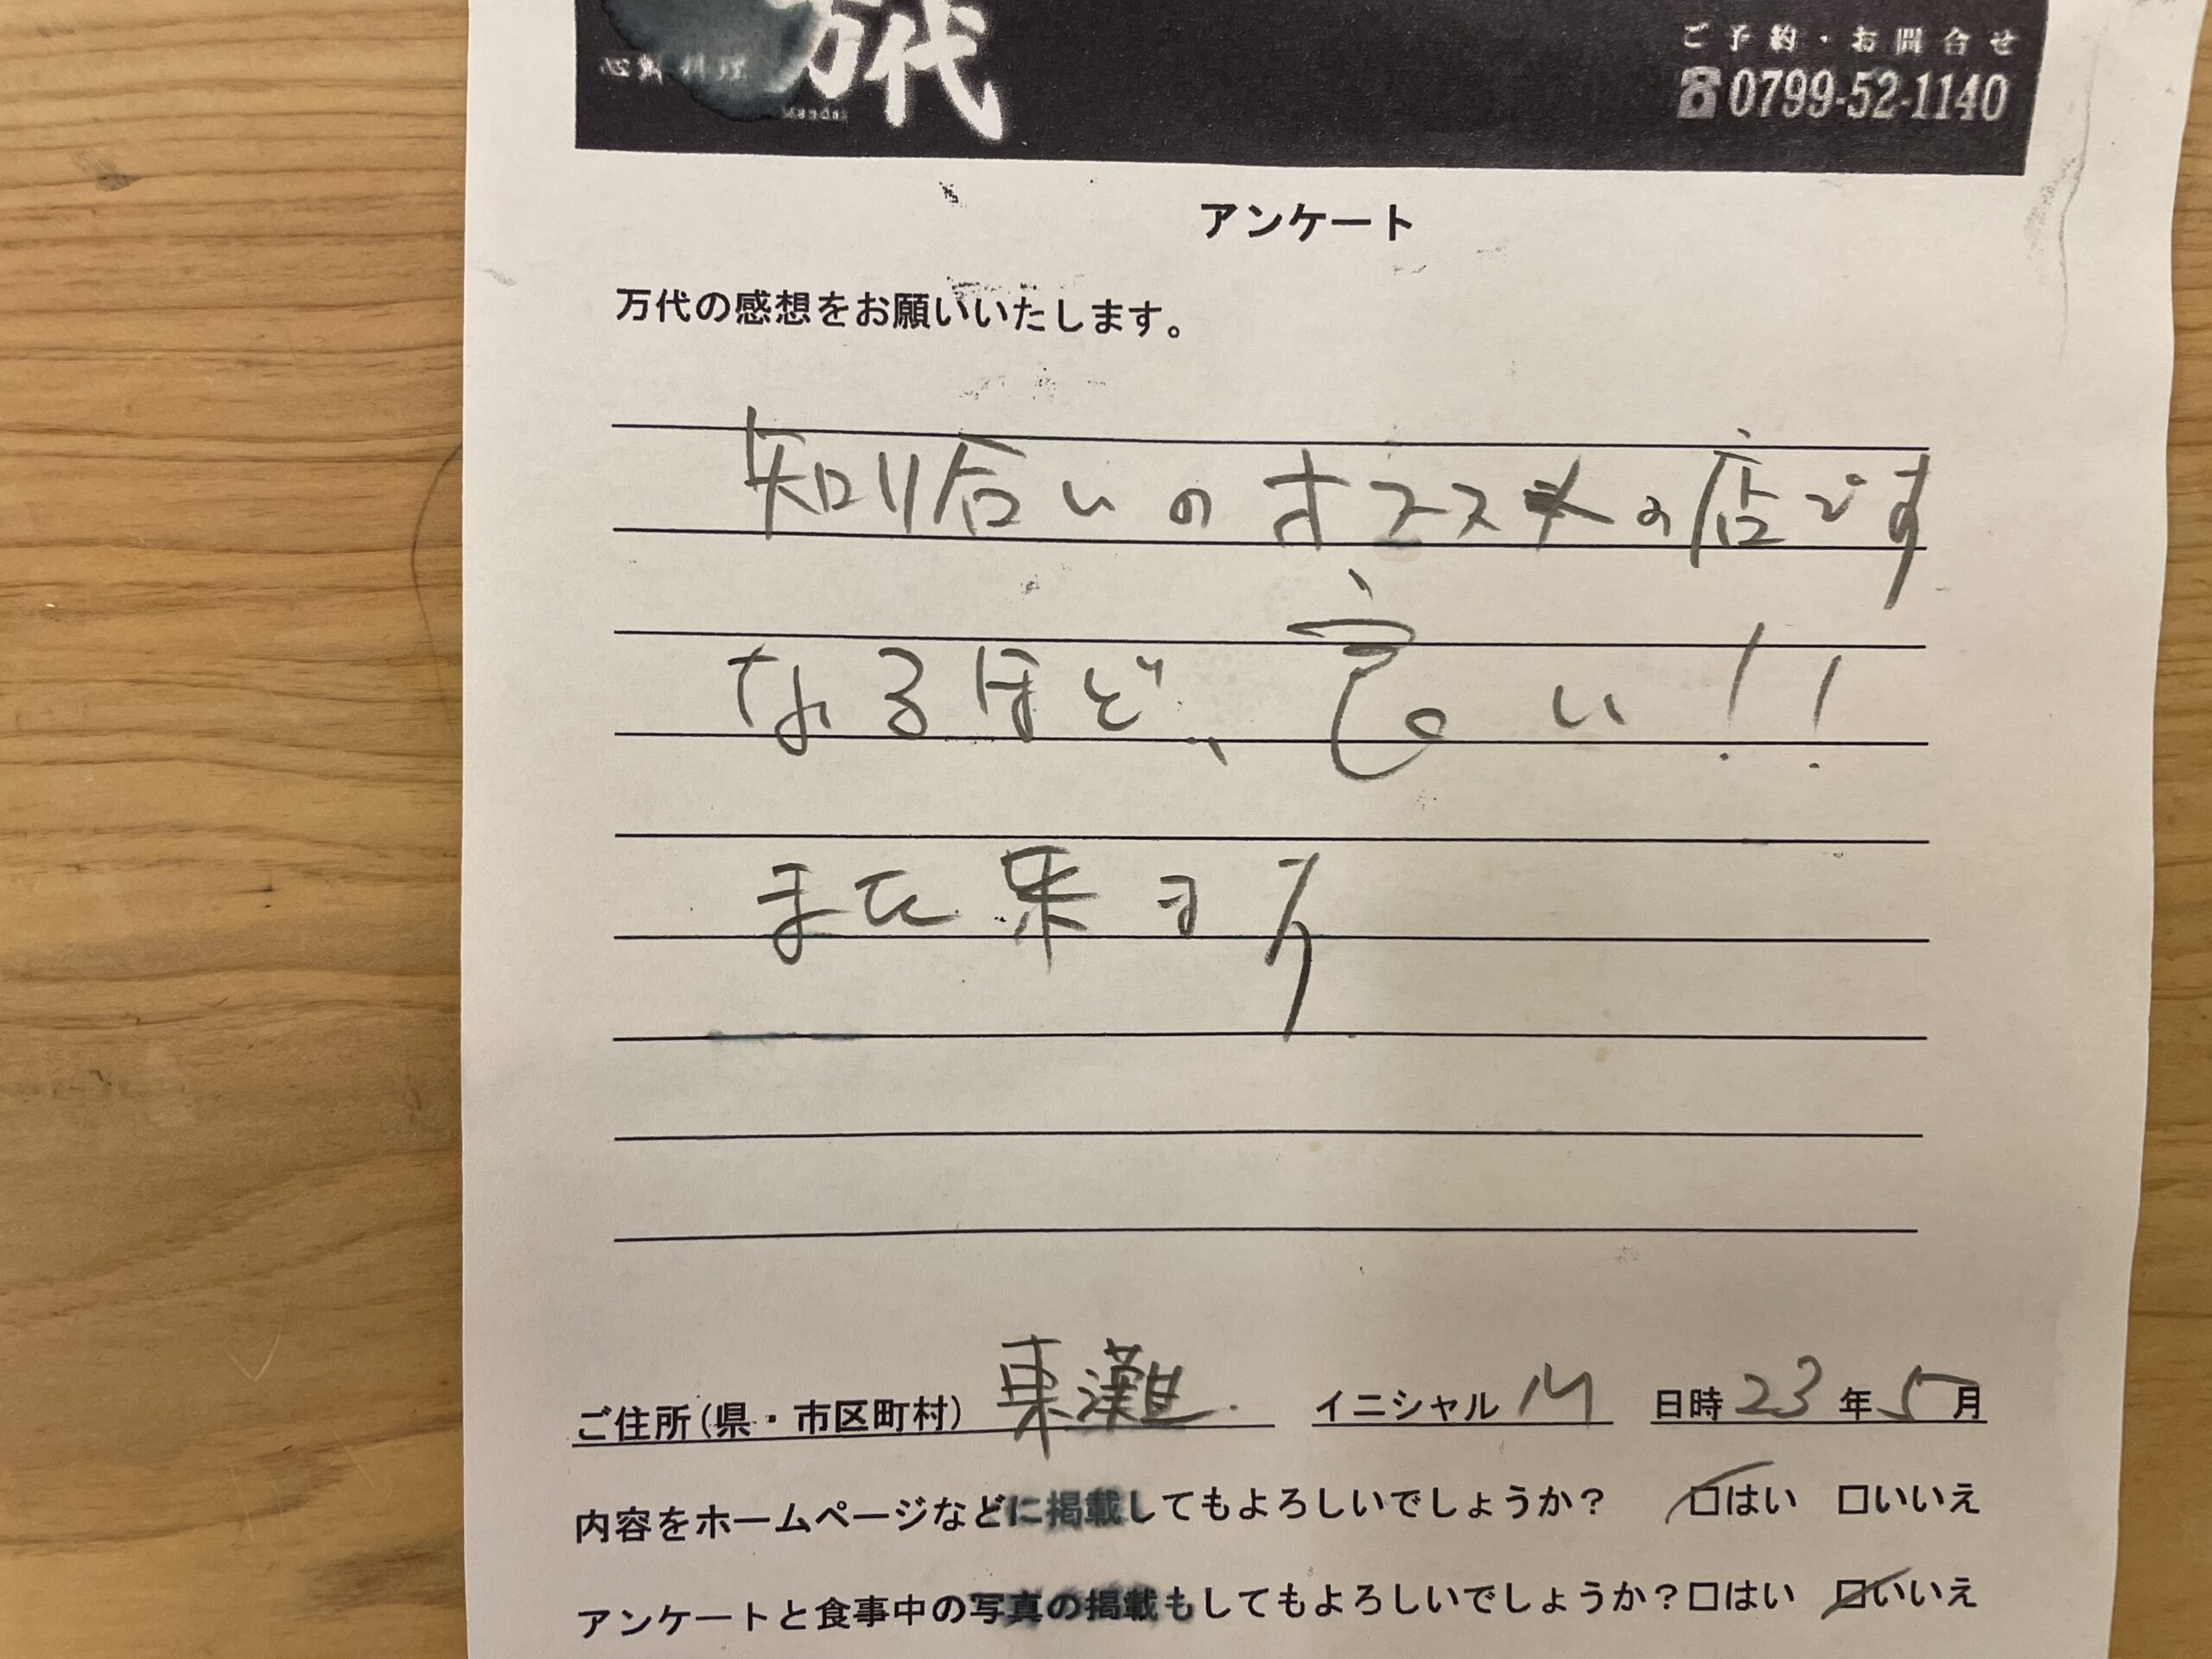 万代
ご予約・お問合せ
☎0799-52-1140
アンケート
万代の感想をお願いいたします。
知り合いのオススメの店です
なるほど、、うまい!!
また来ます
ご住所(県・市区町村) 東灘. イニシャル M 日時 23 年 5 月
内容をホームページなどに掲載してもよろしいでしょうか? □はい □いいえ
アンケートと食事中の写真の掲載もしてもよろしいでしょうか?□はい □いいえ